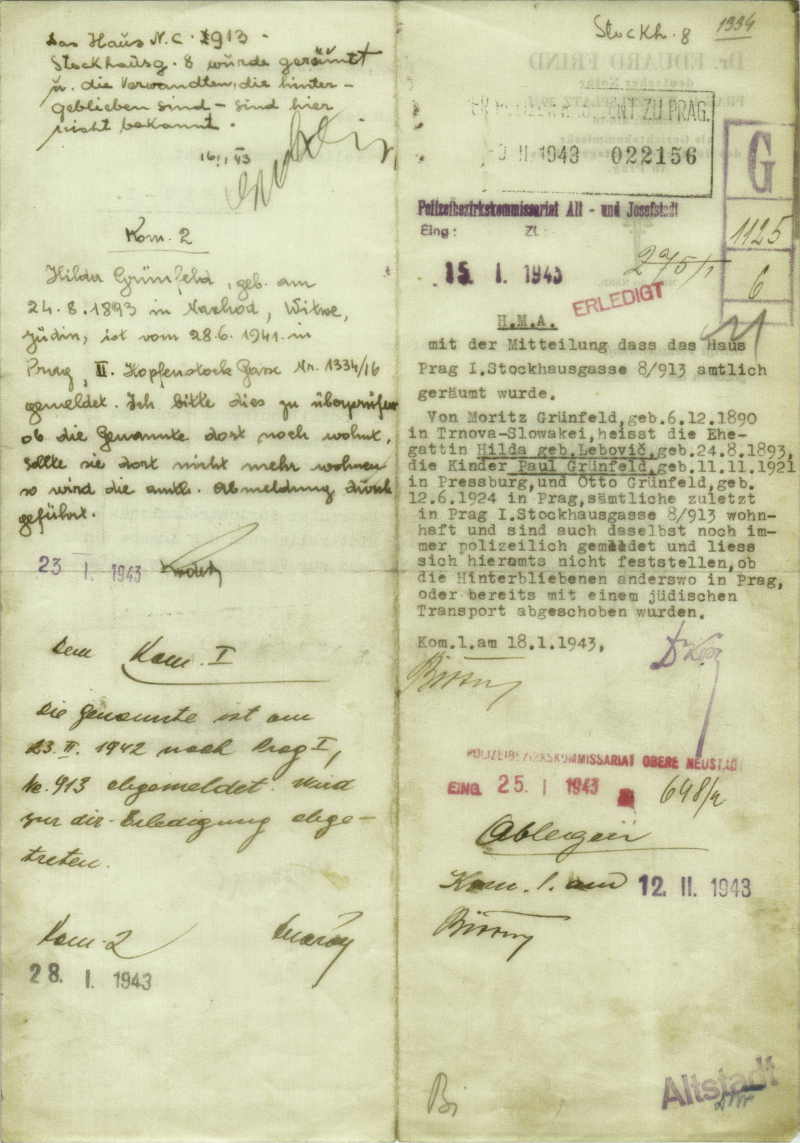 Das Haus N.C. 1913 -
Stockhausg. 8 wurde geräumt
u. die Verwandten, die hinter-
geblieben sind - sind hier
nicht bekannt.
16./I. 43
Kom. 2
Hilda Grünfeld, geb. am
24.8.1893 in Nachod, Witwe,
Jüdin, ist vom 28.6.1941 in
Prag, II. Hopfenstock Gasse Nr. 1334/16
gemeldet. Ich bitte dies zu überprüfen
ob die Genannte dort noch wohnt,
sollte sie dort nicht mehr wohnen
so wird die amtl. Abmeldung durch
geführt.
23 I. 1943
Dem Kom. I
Die Genannte ist am
23.II. 1942 nach Prag I,
Nr. 913 abgemeldet. Wird
zur dir. Erledigung abge-
treten.
Kom. 2
28. I. 1943
Stockh. 8 1334
Dr. EDUARD FRIND
ENT ZU PRAG.
II 1943 022156
G
1125
6
Polizeibezirkskommissariat Alt - und Josefstadt
Eing: Zl.
15. I. 1943
ERLEDIGT
H.M.A.
mit der Mitteilung dass das Haus
Prag I.Stockhausgasse 8/913 amtlich
geräumt wurde.
Von Moritz Grünfeld,geb.6.12.1890
in Trnova-Slowakei,heisst die Ehe-
gattin Hilda geb.Lebovič,geb.24.8.1893,
die Kinder Paul Grünfeld,geb.11.11.1921
in Pressburg,und Otto Grünfeld,geb.
12.6.1924 in Prag,sämtliche zuletzt
in Prag I.Stockhausgasse 8/913 wohn-
haft und sind auch daselbst noch im-
mer polizeilich gemeldet und liess
sich hieramts nicht feststellen,ob
die Hinterbliebenen anderswo in Prag,
oder bereits mit einem jüdischen
Transport abgeschoben wurden.
Kom.1.am 18.1.1943,
POLIZEIBEZIRKSKOMMISSARIAT OBERE NEUSTADT
EING. 25. I 1943 648/2
Ablegen
Kom. 1. am 12. II. 1943
Bi
Altstadt